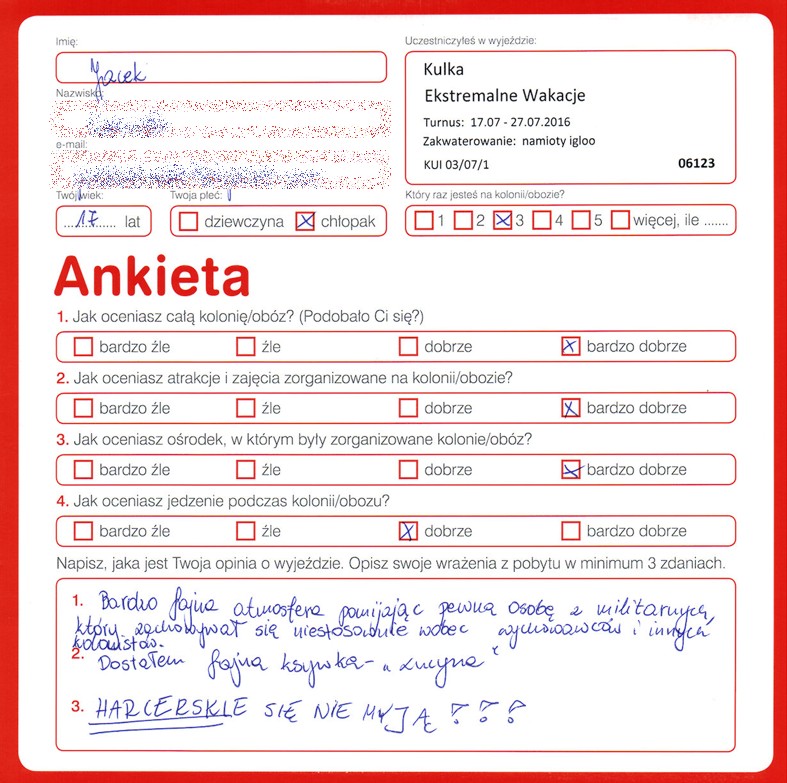 Imię:
Jacek
Uczestniczyłeś w wyjeździe:
Kulka
Ekstremalne Wakacje
Turnus: 17.07 - 27.07.2016
Zakwaterowanie: namioty igloo
KUI 03/07/1 06123
Nazwisko:
e-mail:
Twój wiek:
17 lat
Twoja płeć:
dziewczyna chłopak
Który raz jesteś na kolonii/obozie?
1 2 3 4 5 więcej, ile .......
Ankieta
1. Jak oceniasz całą kolonię/obóz? (Podobało Ci się?)
bardzo źle źle dobrze bardzo dobrze
2. Jak oceniasz atrakcje i zajęcia zorganizowane na kolonii/obozie?
bardzo źle źle dobrze bardzo dobrze
3. Jak oceniasz ośrodek, w którym były zorganizowane kolonie/obóz?
bardzo źle źle dobrze bardzo dobrze
4. Jak oceniasz jedzenie podczas kolonii/obozu?
bardzo źle źle dobrze bardzo dobrze
Napisz, jaka jest Twoja opinia o wyjeździe. Opisz swoje wrażenia z pobytu w minimum 3 zdaniach.
1. Bardzo fajna atmosfera pomijając pewną osobę z militarnych,
który zachowywał się niestosownie wobec wychowawców i innych
kolonistów.
2. Dostałem fajną ksywkę - "Lucyna"
3. HARCERSKIE SIĘ NIE MYJĄ ? ? ?